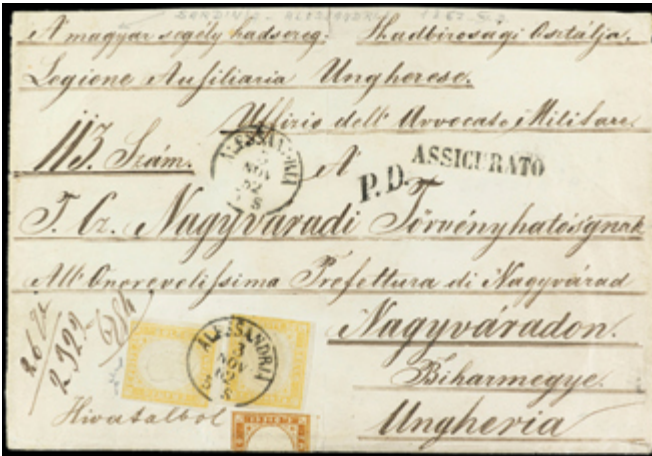 SARDINIA - ALESSANDRIA 1862
A magyar segely hadsereg. Hadbirosagi Osztálja.
Legione Ausiliaria Ungherese.
Uffizio dell' Avvocato Militare
113. Szám. A
ALESSANDRIA
3
NOV
62
5 S
P.D.
ASSICURATO
T. Cz. Nagyváradi Törvényhatóságnak
All' Onorevolissima Prefettura di Nagyvárad
Nagyváradon.
Biharmegye.
Ungheria
2322
684
ALESSANDRIA
3
NOV
62
5 S
Hivatalból